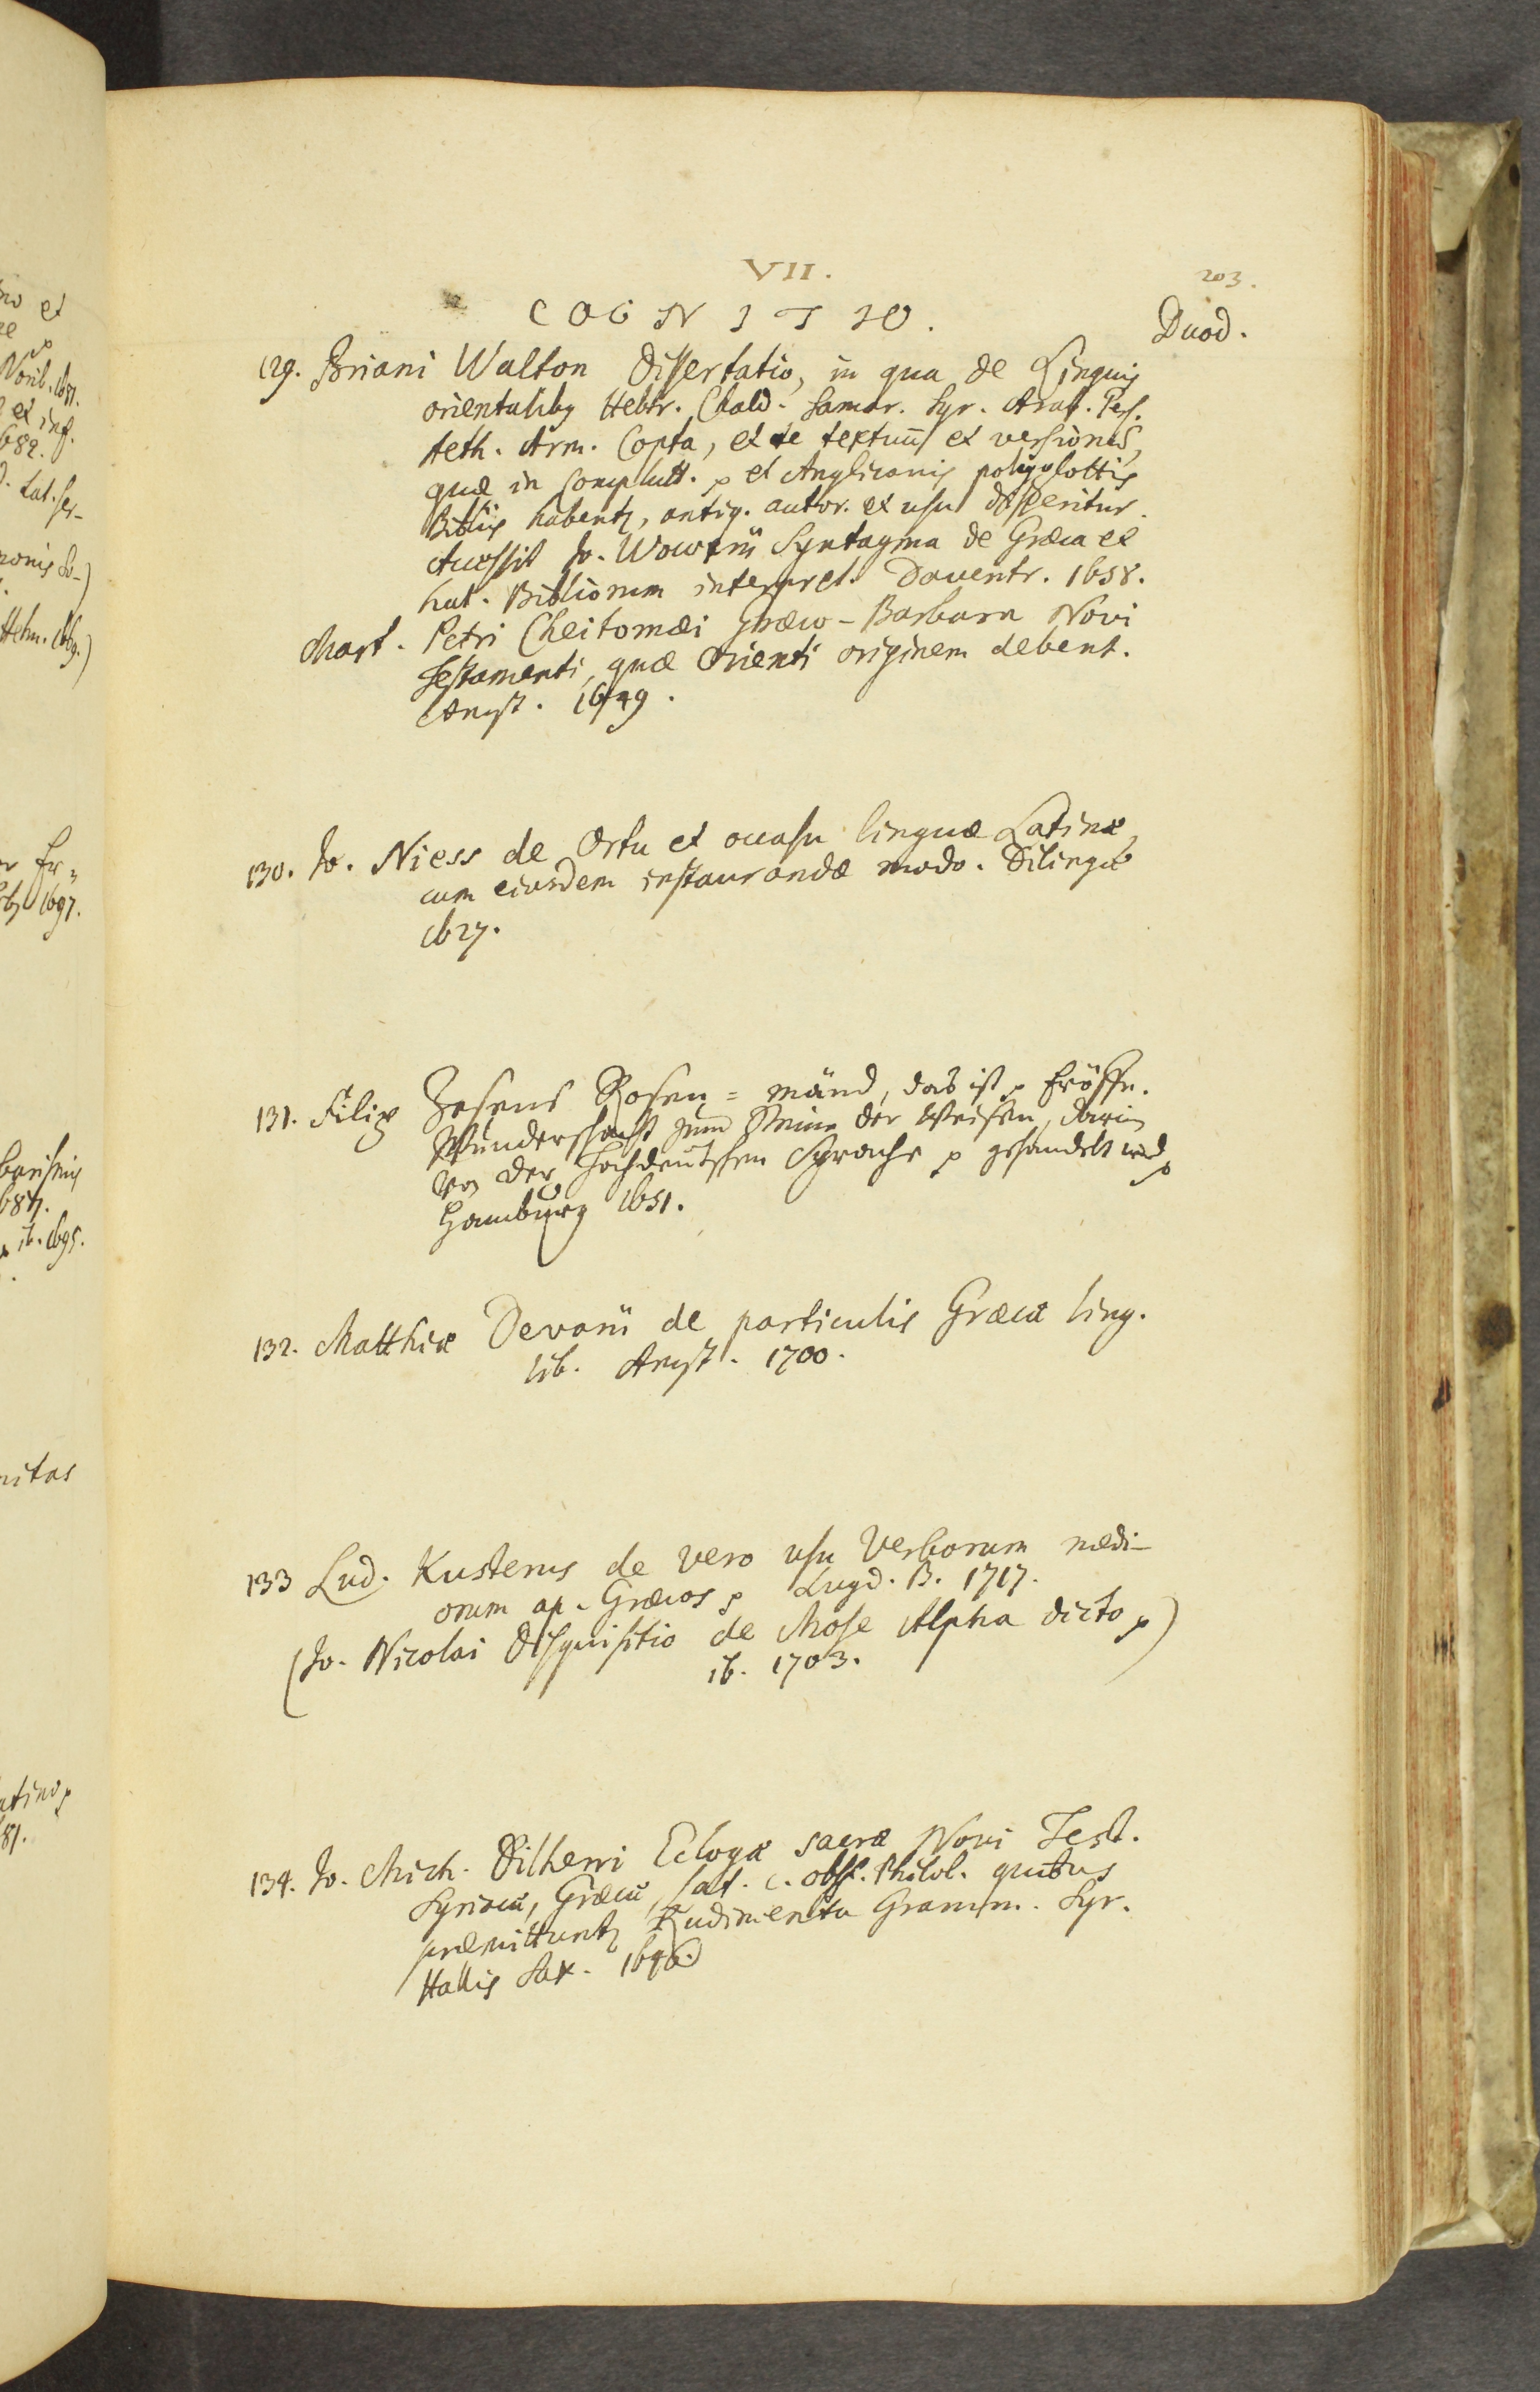 VII.
203.
COGNITIO.
Duod.
129. Briani Walton Dissertatio, in qua de Linguis
orientalibq Hebr. Chald. Samar. Syr. Arab. Pers.
Aeth. Arm. Copta, et de textuũ et versiones,
quæ in Complutt. p et Anglicanis polyglottis
Bibliis habentq, antiq. autor. et usu disseritur.
Accessit Jo. Wowerii Syntagma de Græca et
Lat. Bibliorum interpret. Daventr. 1658.
Mart. Petri Cheitomæi Græco-Barbara Novi
Testamenti, quæ Orienti originem debent.
Amst. 1649.
130. Jo. Niess de Ortu et occasu linguæ Latinæ,
cum eiusdem instaurandæ modo. Dilingæ
1627.
131. Filip Zesens Rosen=mând, das ist p Eröffn.
Wunderschacht zum Steine der Weisen, darin
von der Hochdeutschen Sprache p gehandelt wird p
Hamburg 1651.
132. Matthiæ Devarii de particulis Græcæ ling.
lib. Amst. 1700.
133 Lud. Kusterus de vero usu Verborum medi-
orum ap. Græcos p Lugd. B. 1717.
(Jo. Nicolai Disquisitio de Mose Alpha dicto p)
ib. 1703.
134. Jo. Mich. Dilherri Eclogæ sacræ Novi Test.
Syriacæ, Græcæ, Lat. c. obss. Philol. quibus
præmittuntq Rudimenta Gramm. Syr.
Hallis Sax. 1646.
no et
Norib. 1671.
et inf.
1682.
Lat. Ser-
Helm.
Er=
1697.
1687.
ib. 1695.
nitas
atino p
81.